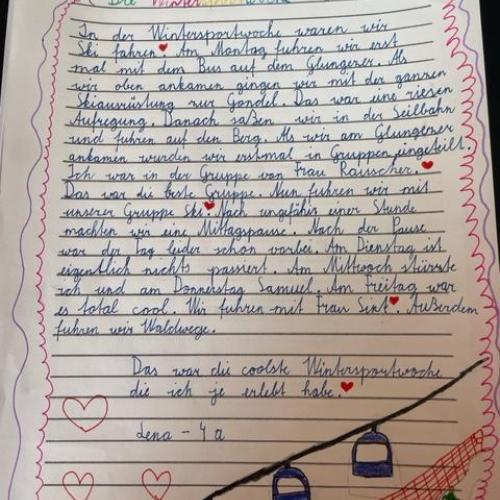 Die Wintersportwoche
In der Wintersportwoche waren wir
Ski fahren. Am Montag fuhren wir erst
mal mit dem Bus auf dem Glungezer. Als
wir oben ankamen gingen wir mit der ganzen
Skiausrüstung zur Gondel. Das war eine riesen
Aufregung. Danach saßen wir in der Seilbahn
und fuhren auf den Berg. Als wir am Glungezer
ankamen wurden wir erstmal in Gruppen eingeteilt.
Ich war in der Gruppe von Frau Rauscher.
Das war die beste Gruppe. Nun fuhren wir mit
unserer Gruppe Ski. Nach ungefähr einer Stunde
machten wir eine Mittagspause. Nach der Pause
war der Tag leider schon vorbei. Am Dienstag ist
eigentlich nichts passiert. Am Mittwoch stürzte
ich und am Donnerstag Samuel. Am Freitag war
es total cool. Wir fuhren mit Frau Sint. Außerdem
fuhren wir Waldwege.
Das war die coolste Wintersportwoche
die ich je erlebt habe.
Lena - 4a